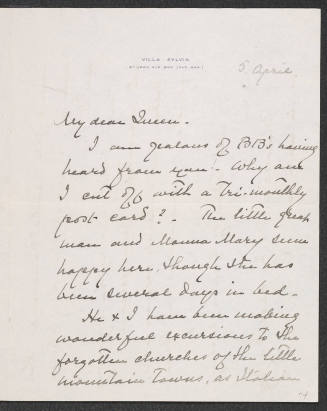 VILLA SYLVIA
ST JEAN SUR MER (ALP. MAR.)
5 April.
My dear Queen.
I am jealous of BB's having
heard from you! - Why am
I cut off with a Tri-monthly
post card? - The little great
man and Monna Mary seem
happy here, though she has
been several days in bed.
He & I have been making
wonderful excursions to the
forgotten churches of the little
mountain towns, as Italian